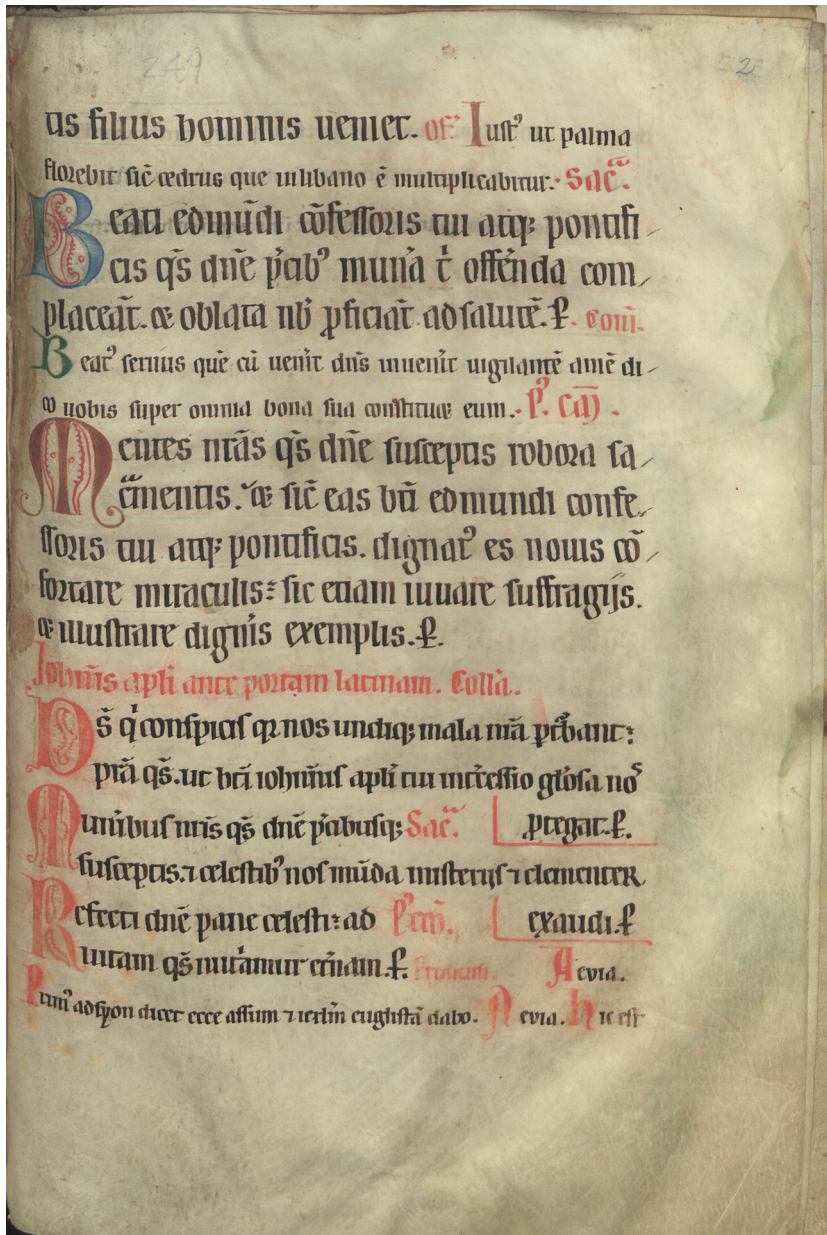 249
2
tis filius hominis ueniet. of̄. Iust᾽ ut palma
florebit sic̄ cedrus que in libano ē multiplicabitur. Sac͛.
Beati edmūdi cōfessoris tui atq; pontifi
cis q̄s dn̄e p̄cib᾽ mun͛a ⁊ offerēda com
placeāt. et oblata nob̄ ꝓficiāt ad salutē. ꝑ. Com̄.
Beat᾽ seruus quē cū uen͛it dn̄s inuen͛it uigilantē amē di
co uobis super omnia bona sua constituet eum. P᾽. Cō
Mentes nr̄as q̄s dn̄e susceptis robora sa
c͛mentis. et sic̄ eas bt̄i edmundi confe
ssoris tui atq; pontificis. dignat᾽ es nouis cō
fortare miraculis: sic etiam iuuare suffragijs.
et illustrare dignis exemplis. ꝑ.
Ioh̄nis apl̄i ante portam latinam. Coll͛a.
Ds̄ qͥ conspicis qꝛ nos undiq; mala nr̄a ꝑt͛bant:
pr̄a q̄s. ut bt̄i ioh̄nis apl̄i tui int͛cessio gl̄osa nos
Munͥbus nr̄is q̄s dn̄e p̄cibusq; Sac͛. ꝓtegat. ꝑ.
susceptis. ⁊ celestib᾽ nos mūda misterijs ⁊ clementer
Refecti dn̄e pane celesti: ad P᾽ cō. exaudi. ꝑ
uitam q̄s nut͛amur et͛nam. ꝑ. Aeuia.
Prim᾽ ad syon dicet ecce assum ⁊ ierl̄m euḡlistā dabo. Aeuia. Hic est